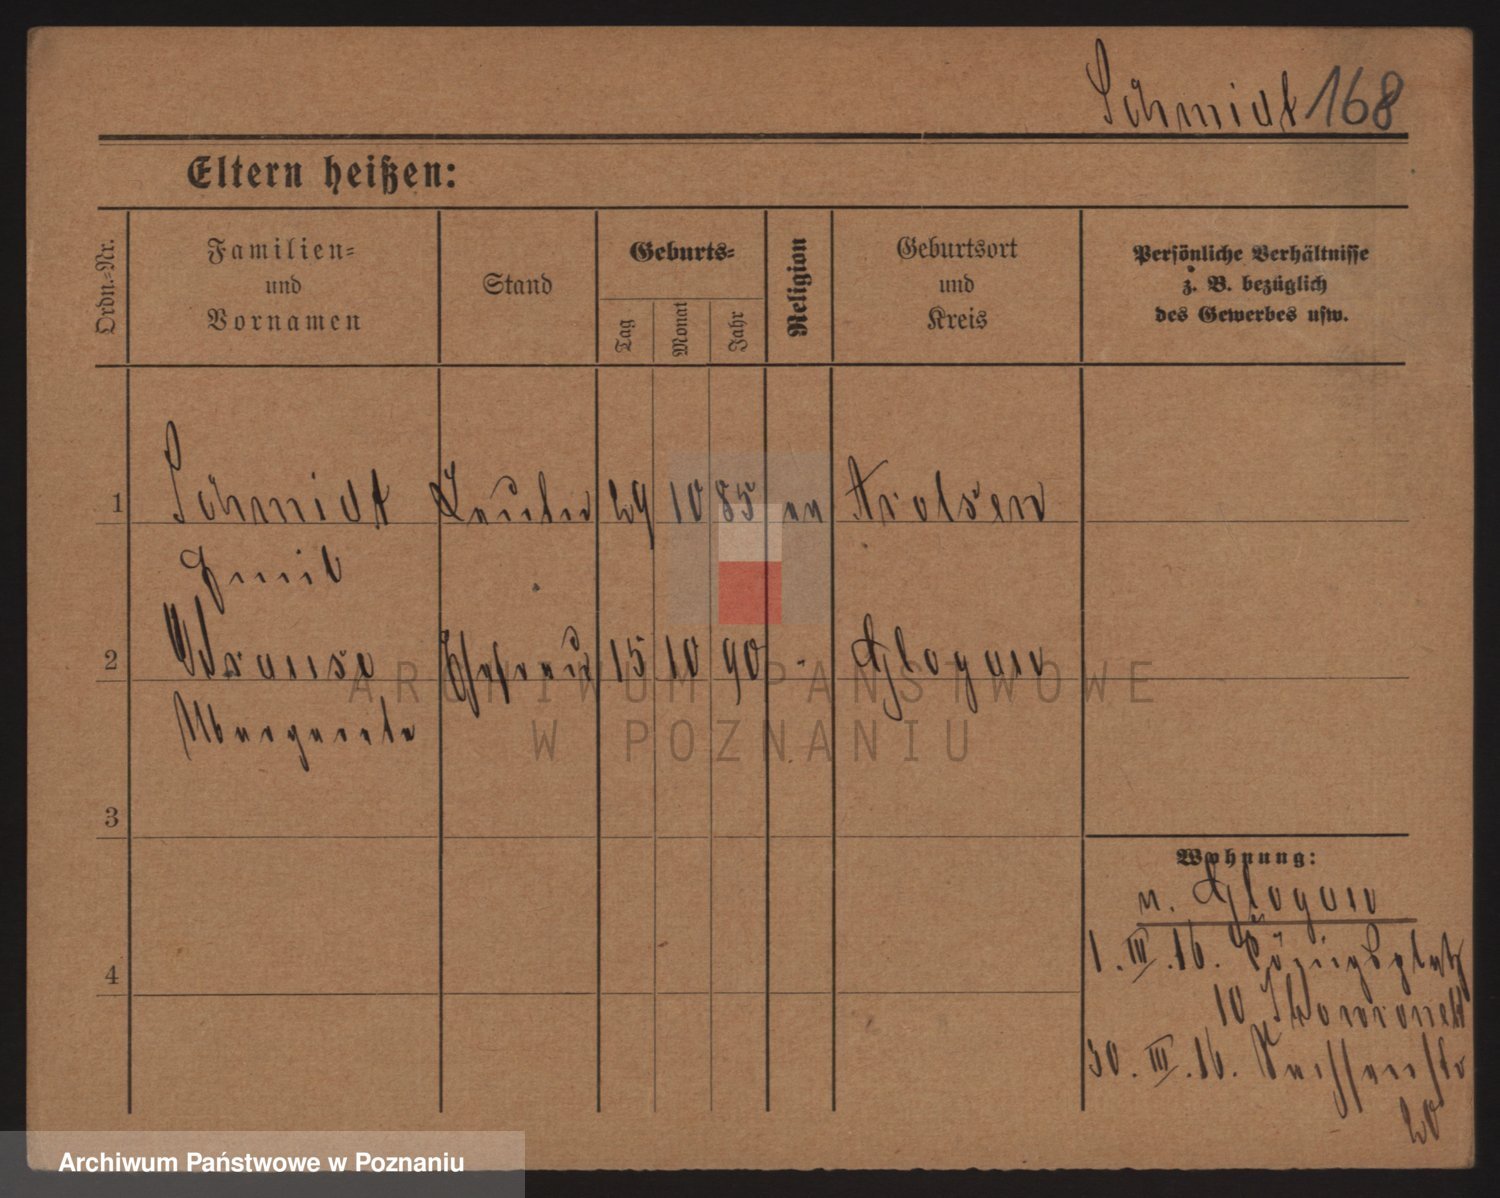 Schmidt 168
Eltern heißen:
Ordn.-Nr.
Familien-
und
Vornamen
Stand
Geburts-
Tag
Monat
Jahr
Religion
Geburtsort
und
Kreis
Persönliche Verhältnisse
z. B. bezüglich
des Gewerbes usw.
1 Schmidt 29 10 85 ev Arolsen
Emil
2 Krause Ehefrau 15 10 90 - Glogau
Margarete
3
4
Wohnung:
n. Glogau
1. III. 16. Königsplatz
10 Skowronek
30. III. 16.
20
ARCHIWUM PAŃSTWOWE
W POZNANIU
Archiwum Państwowe w Poznaniu